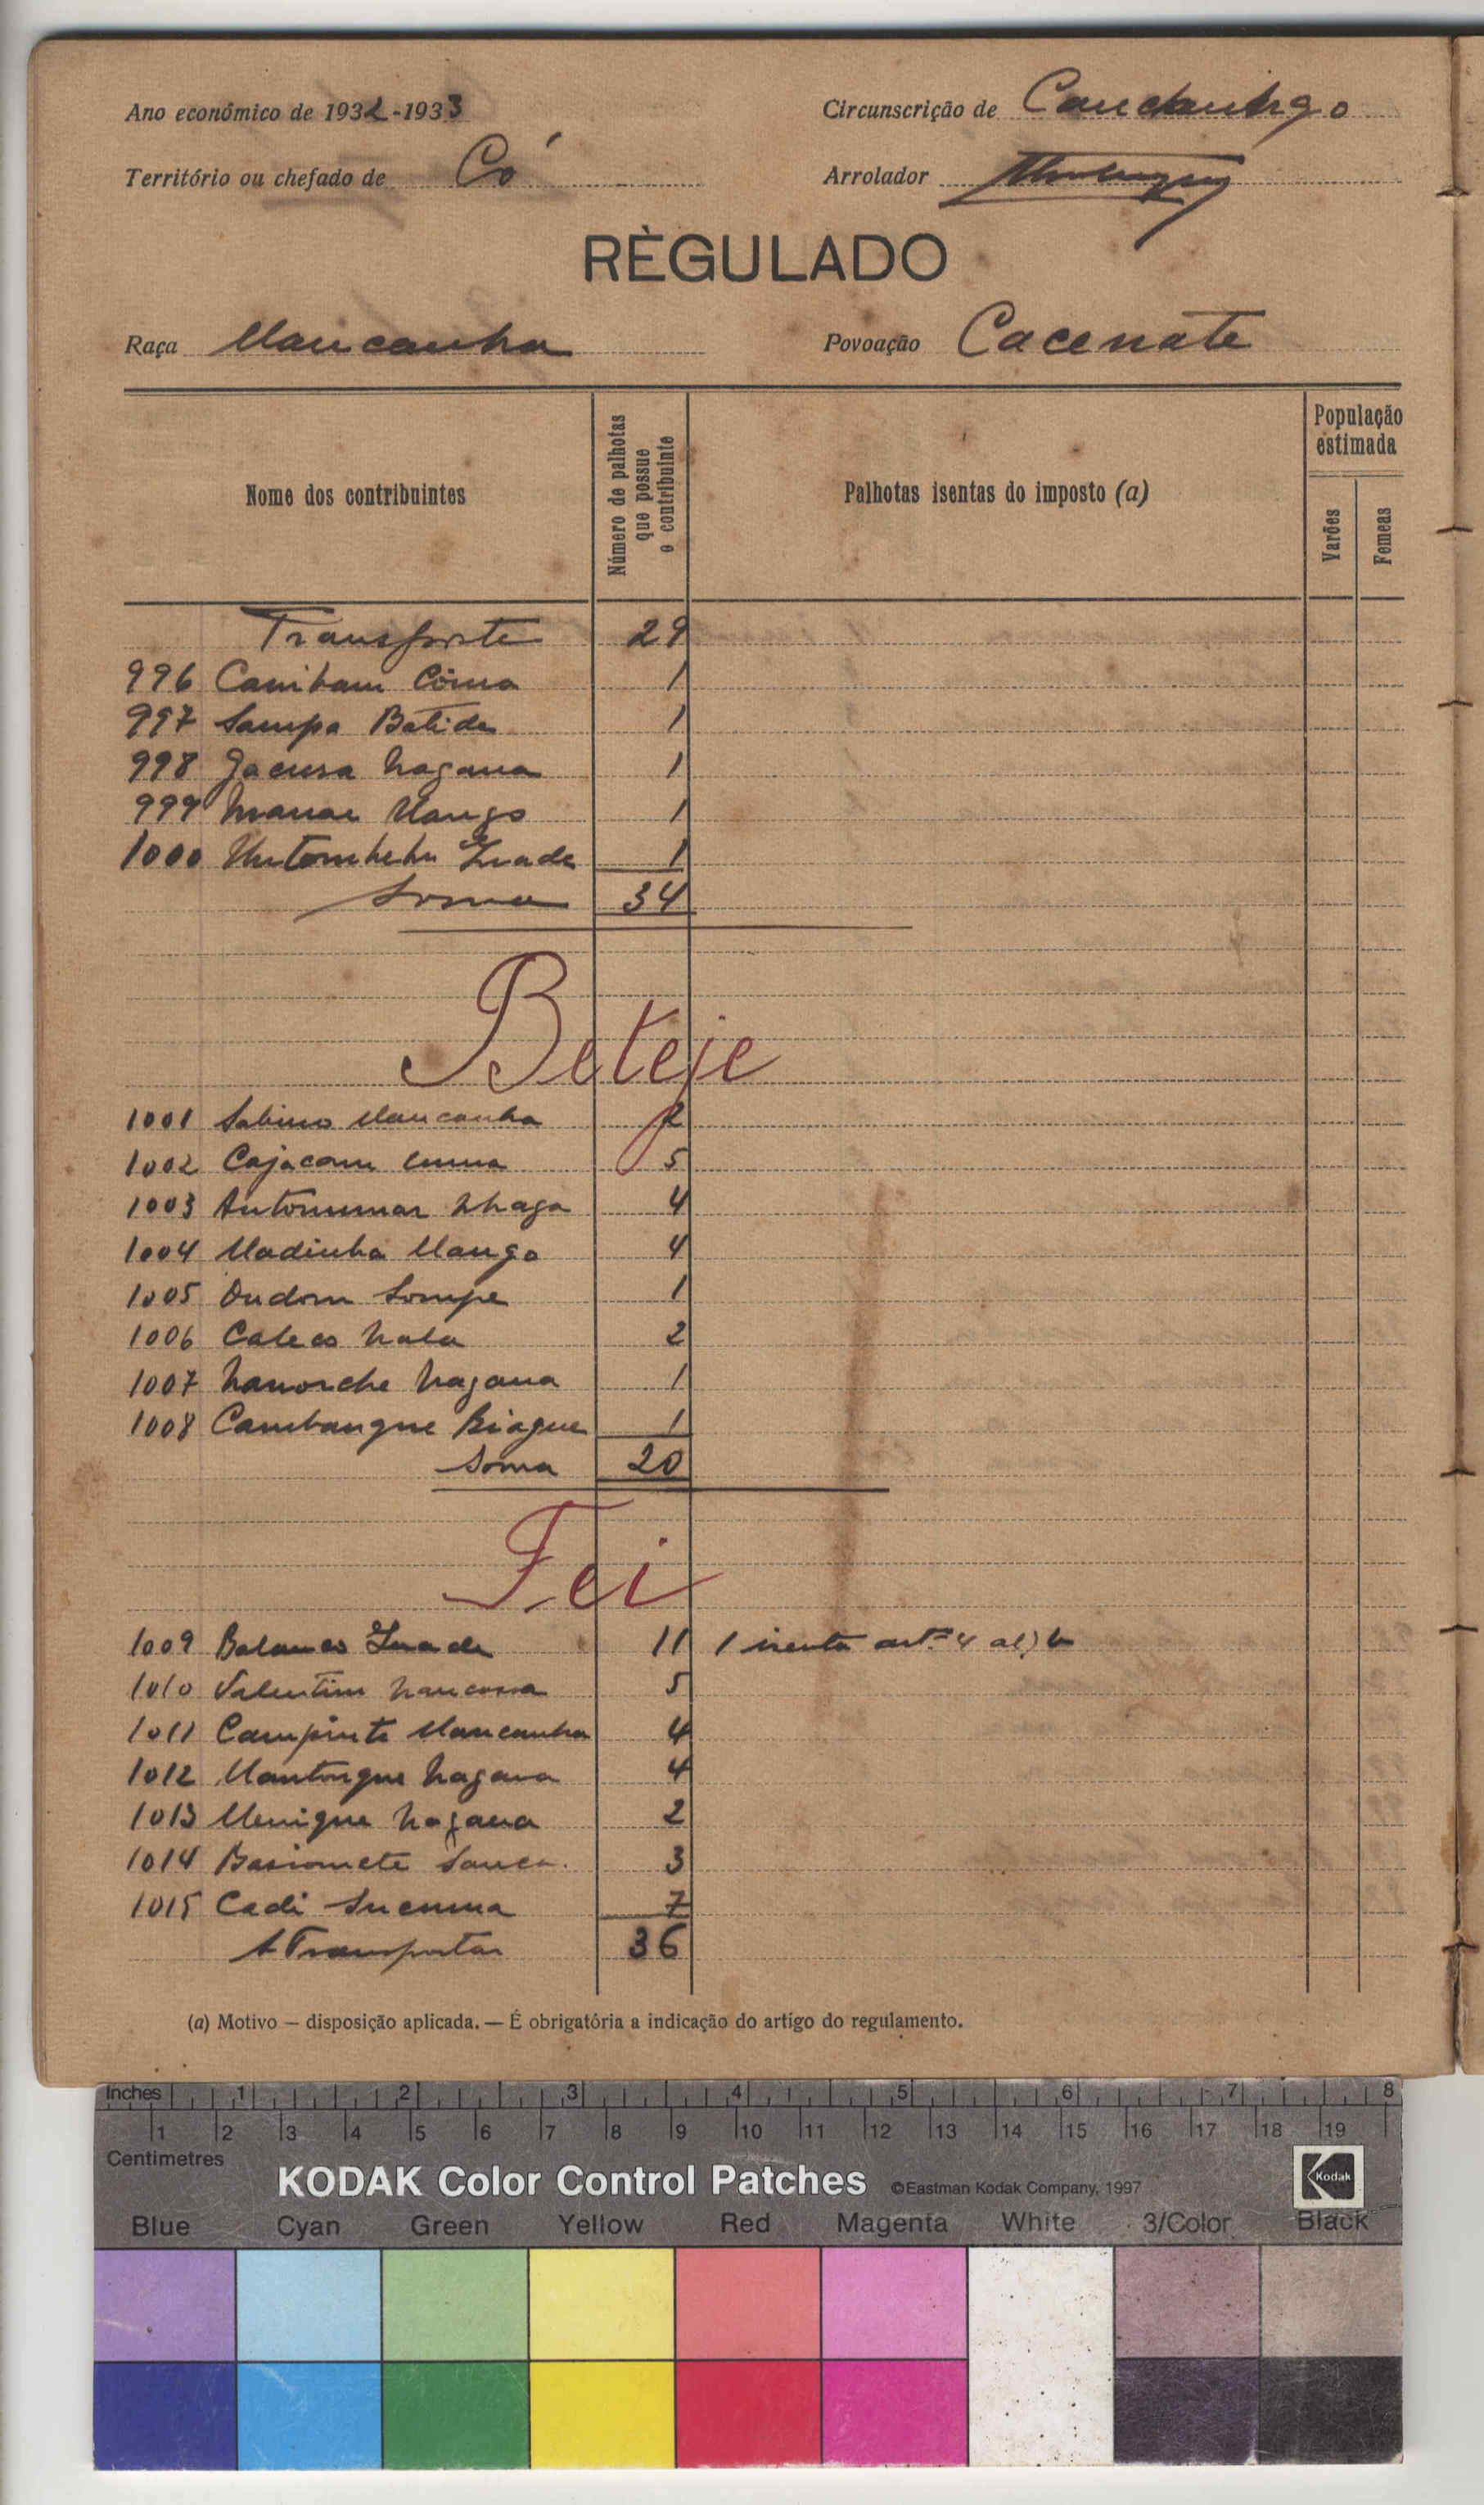 Ano económico de 1932-1933
Circunscrição de Canchungo
Território ou chefado de Có
Arrolador
RÈGULADO
Raça Mancanha
Povoação Cacenate
Nome dos contribuintes
Número de palhotas que possue o contribuinte
Palhotas isentas do imposto (a)
População estimada
Varões
Femeas
Transporte 29
996 Canibam 1
997 Sampa Batida 1
998 Jacusa Nagana 1
999 Mango 1
1000 1
Soma 34
Beteje
1001 Sabino Mancanha 2
1002 Cajacam 5
1003 4
1004 Madinha Mango 4
1005 Ondom Sompe 1
1006 Caleco Nala 2
1007 Nanorche Nagana 1
1008 Cambangue Biague 1
Soma 20
Fei
1009 Balanco 11 1 isenta artº 4 al) b
1010 Valentim 5
1011 Campinte Mancanha 4
1012 Mantongue Nagana 4
1013 Menigue Nagana 2
1014 3
1015 Cadi 7
A Transportar 36
(a) Motivo — disposição aplicada. — É obrigatória a indicação do artigo do regulamento.
Inches 1 2 3 4 5 6 7 8
1 2 3 4 5 6 7 8 9 10 11 12 13 14 15 16 17 18 19
Centimetres
KODAK Color Control Patches ©Eastman Kodak Company, 1997
Kodak
Blue Cyan Green Yellow Red Magenta White 3/Color Black